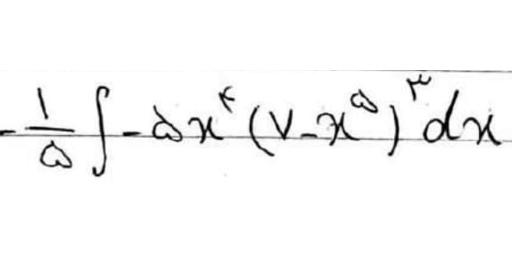 -\frac{۱}{۵} \int -۵x^۴ (۷-x^۵)^۳ dx